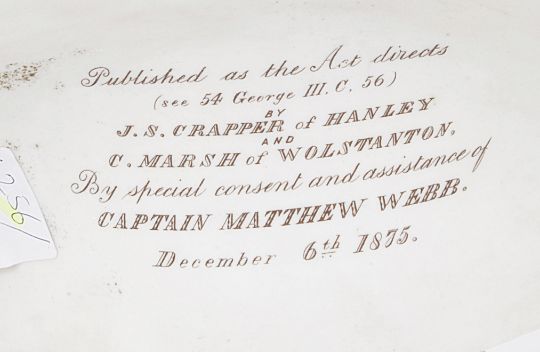 Published as the Act directs
(see 54 George III. C. 56)
BY
J. S. CRAPPER of HANLEY
AND
C. MARSH of WOLSTANTON.
By special consent and assistance of
CAPTAIN MATTHEW WEBB.
December 6th 1875.